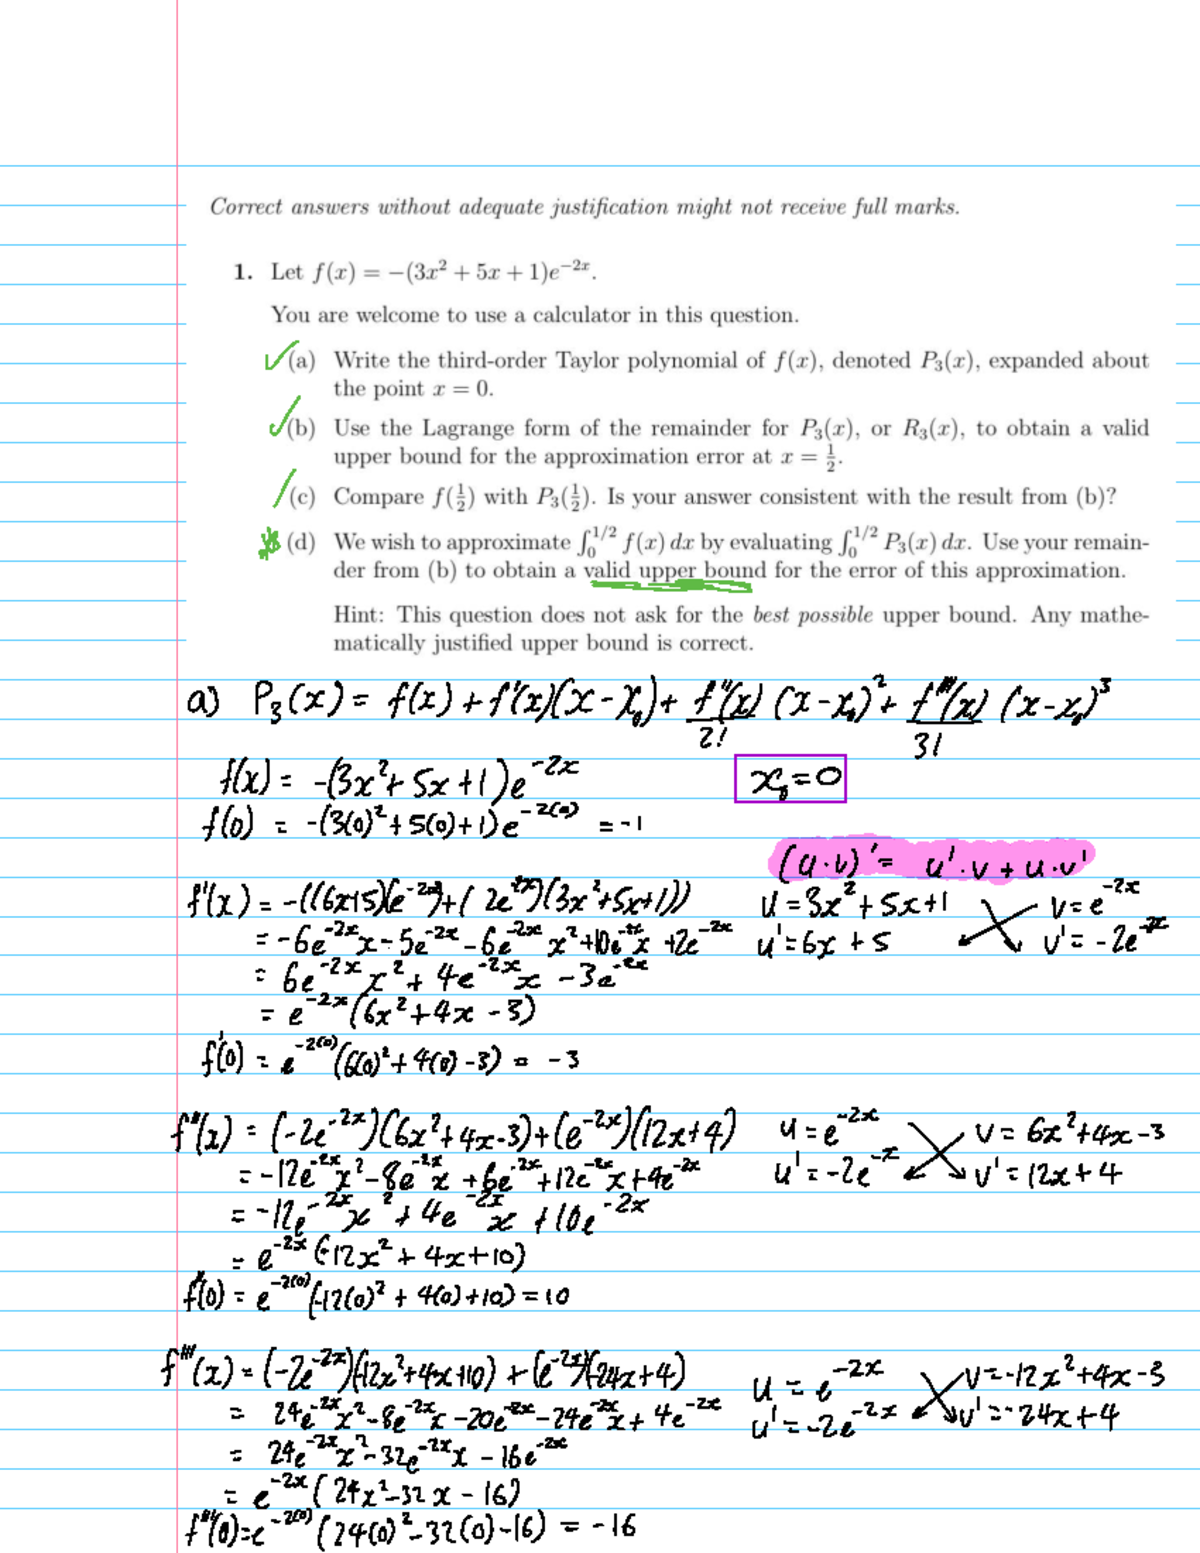 Correct answers without adequate justification might not receive full marks.
1. Let f(x) = −(3x² + 5x + 1)e^{−2x}.
You are welcome to use a calculator in this question.
(a) Write the third-order Taylor polynomial of f(x), denoted P₃(x), expanded about
the point x = 0.
(b) Use the Lagrange form of the remainder for P₃(x), or R₃(x), to obtain a valid
upper bound for the approximation error at x = 1/2.
(c) Compare f(1/2) with P₃(1/2). Is your answer consistent with the result from (b)?
(d) We wish to approximate ∫₀^{1/2} f(x) dx by evaluating ∫₀^{1/2} P₃(x) dx. Use your remain-
der from (b) to obtain a valid upper bound for the error of this approximation.
Hint: This question does not ask for the best possible upper bound. Any mathe-
matically justified upper bound is correct.
a) P₃(x) = f(x) + f'(x)(x - x₀) + f''(x)/2! (x - x₀)² + f'''(x)/3! (x - x₀)³
f(x) = -(3x² + 5x + 1)e^{-2x}
x₀ = 0
f(0) = -(3(0)² + 5(0) + 1)e^{-2(0)} = -1
(u·v)' = u'·v + u·v'
f'(x) = -((6x+5)(e^{-2x}) + (2e^{-2x})(3x²+5x+1))
u = 3x² + 5x + 1 v = e^{-2x}
= -6e^{-2x}x - 5e^{-2x} - 6e^{-2x}x² + 10e^{-2x}x + 2e^{-2x}
u' = 6x + 5 v' = -2e^{-2x}
= 6e^{-2x}x² + 4e^{-2x}x - 3e^{-2x}
= e^{-2x}(6x² + 4x - 3)
f'(0) = e^{-2(0)}(6(0)² + 4(0) - 3) = -3
f''(x) = (-2e^{-2x})(6x² + 4x - 3) + (e^{-2x})(12x + 4)
u = e^{-2x} v = 6x² + 4x - 3
= -12e^{-2x}x² - 8e^{-2x}x + 6e^{-2x} + 12e^{-2x}x + 4e^{-2x}
u' = -2e^{-x} v' = 12x + 4
= -12e^{-2x}x² + 4e^{-2x}x + 10e^{-2x}
= e^{-2x}(-12x² + 4x + 10)
f''(0) = e^{-2(0)}(-12(0)² + 4(0) + 10) = 10
f'''(x) = (-2e^{-2x})(-12x² + 4x + 10) + (e^{-2x})(-24x + 4)
u = e^{-2x} v = -12x² + 4x - 3
= 24e^{-2x}x² - 8e^{-2x}x - 20e^{-2x} - 24e^{-2x}x + 4e^{-2x}
u' = -2e^{-2x} v' = -24x + 4
= 24e^{-2x}x² - 32e^{-2x}x - 16e^{-2x}
= e^{-2x}(24x² - 32x - 16)
f'''(0) = e^{-2(0)}(24(0)² - 32(0) - 16) = -16